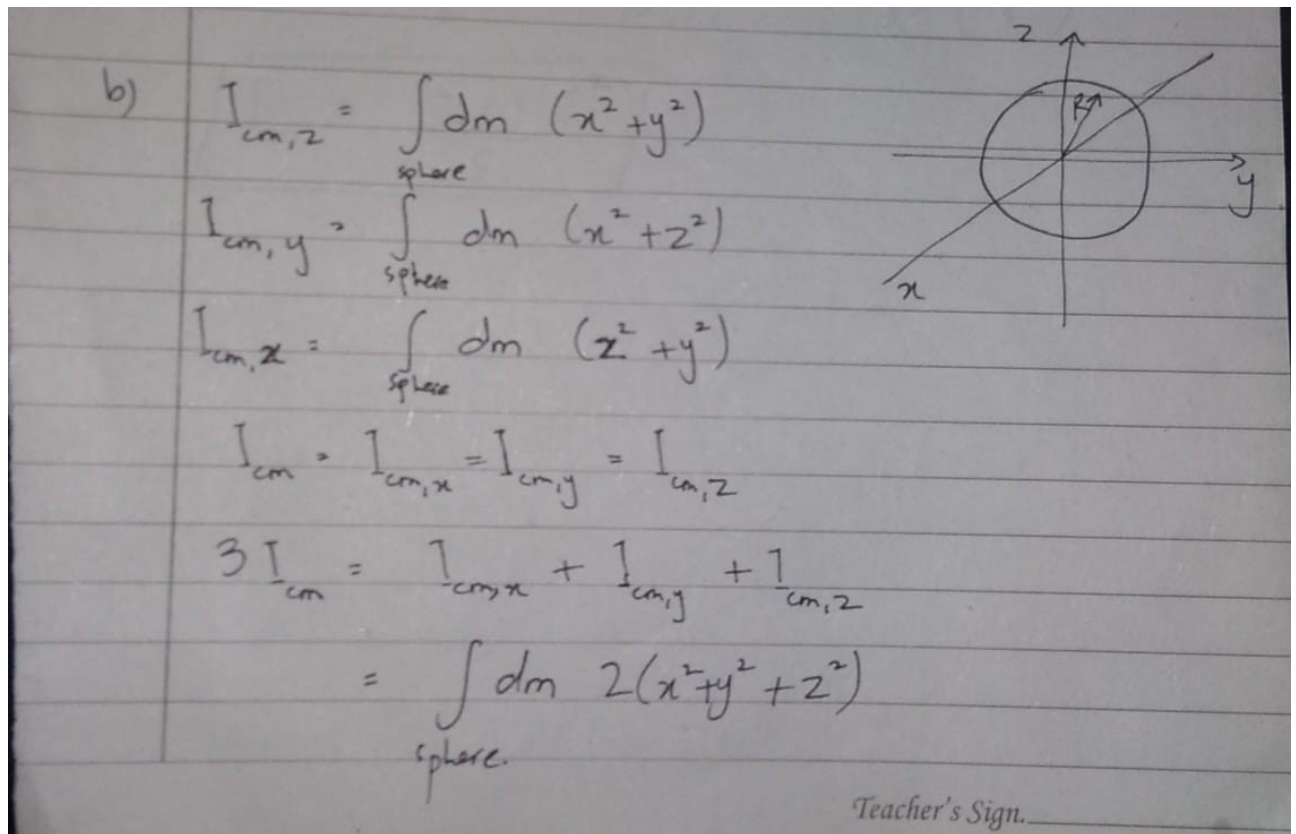 b) I_cm,z = ∫_sphere dm (x² + y²)
I_cm,y = ∫_sphere dm (x² + z²)
I_cm,x = ∫_sphere dm (z² + y²)
I_cm = I_cm,x = I_cm,y = I_cm,z
3 I_cm = I_cm,x + I_cm,y + I_cm,z
= ∫_sphere. dm 2(x² + y² + z²)
z
R
y
x
Teacher's Sign.